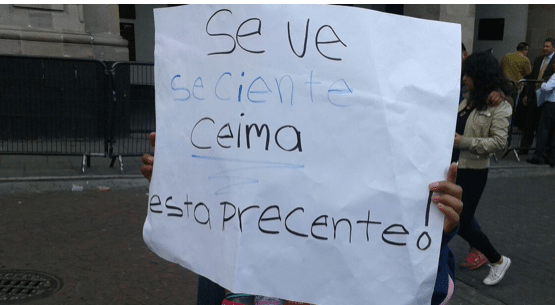 Se ve
se ciente
Ceima
esta precente!